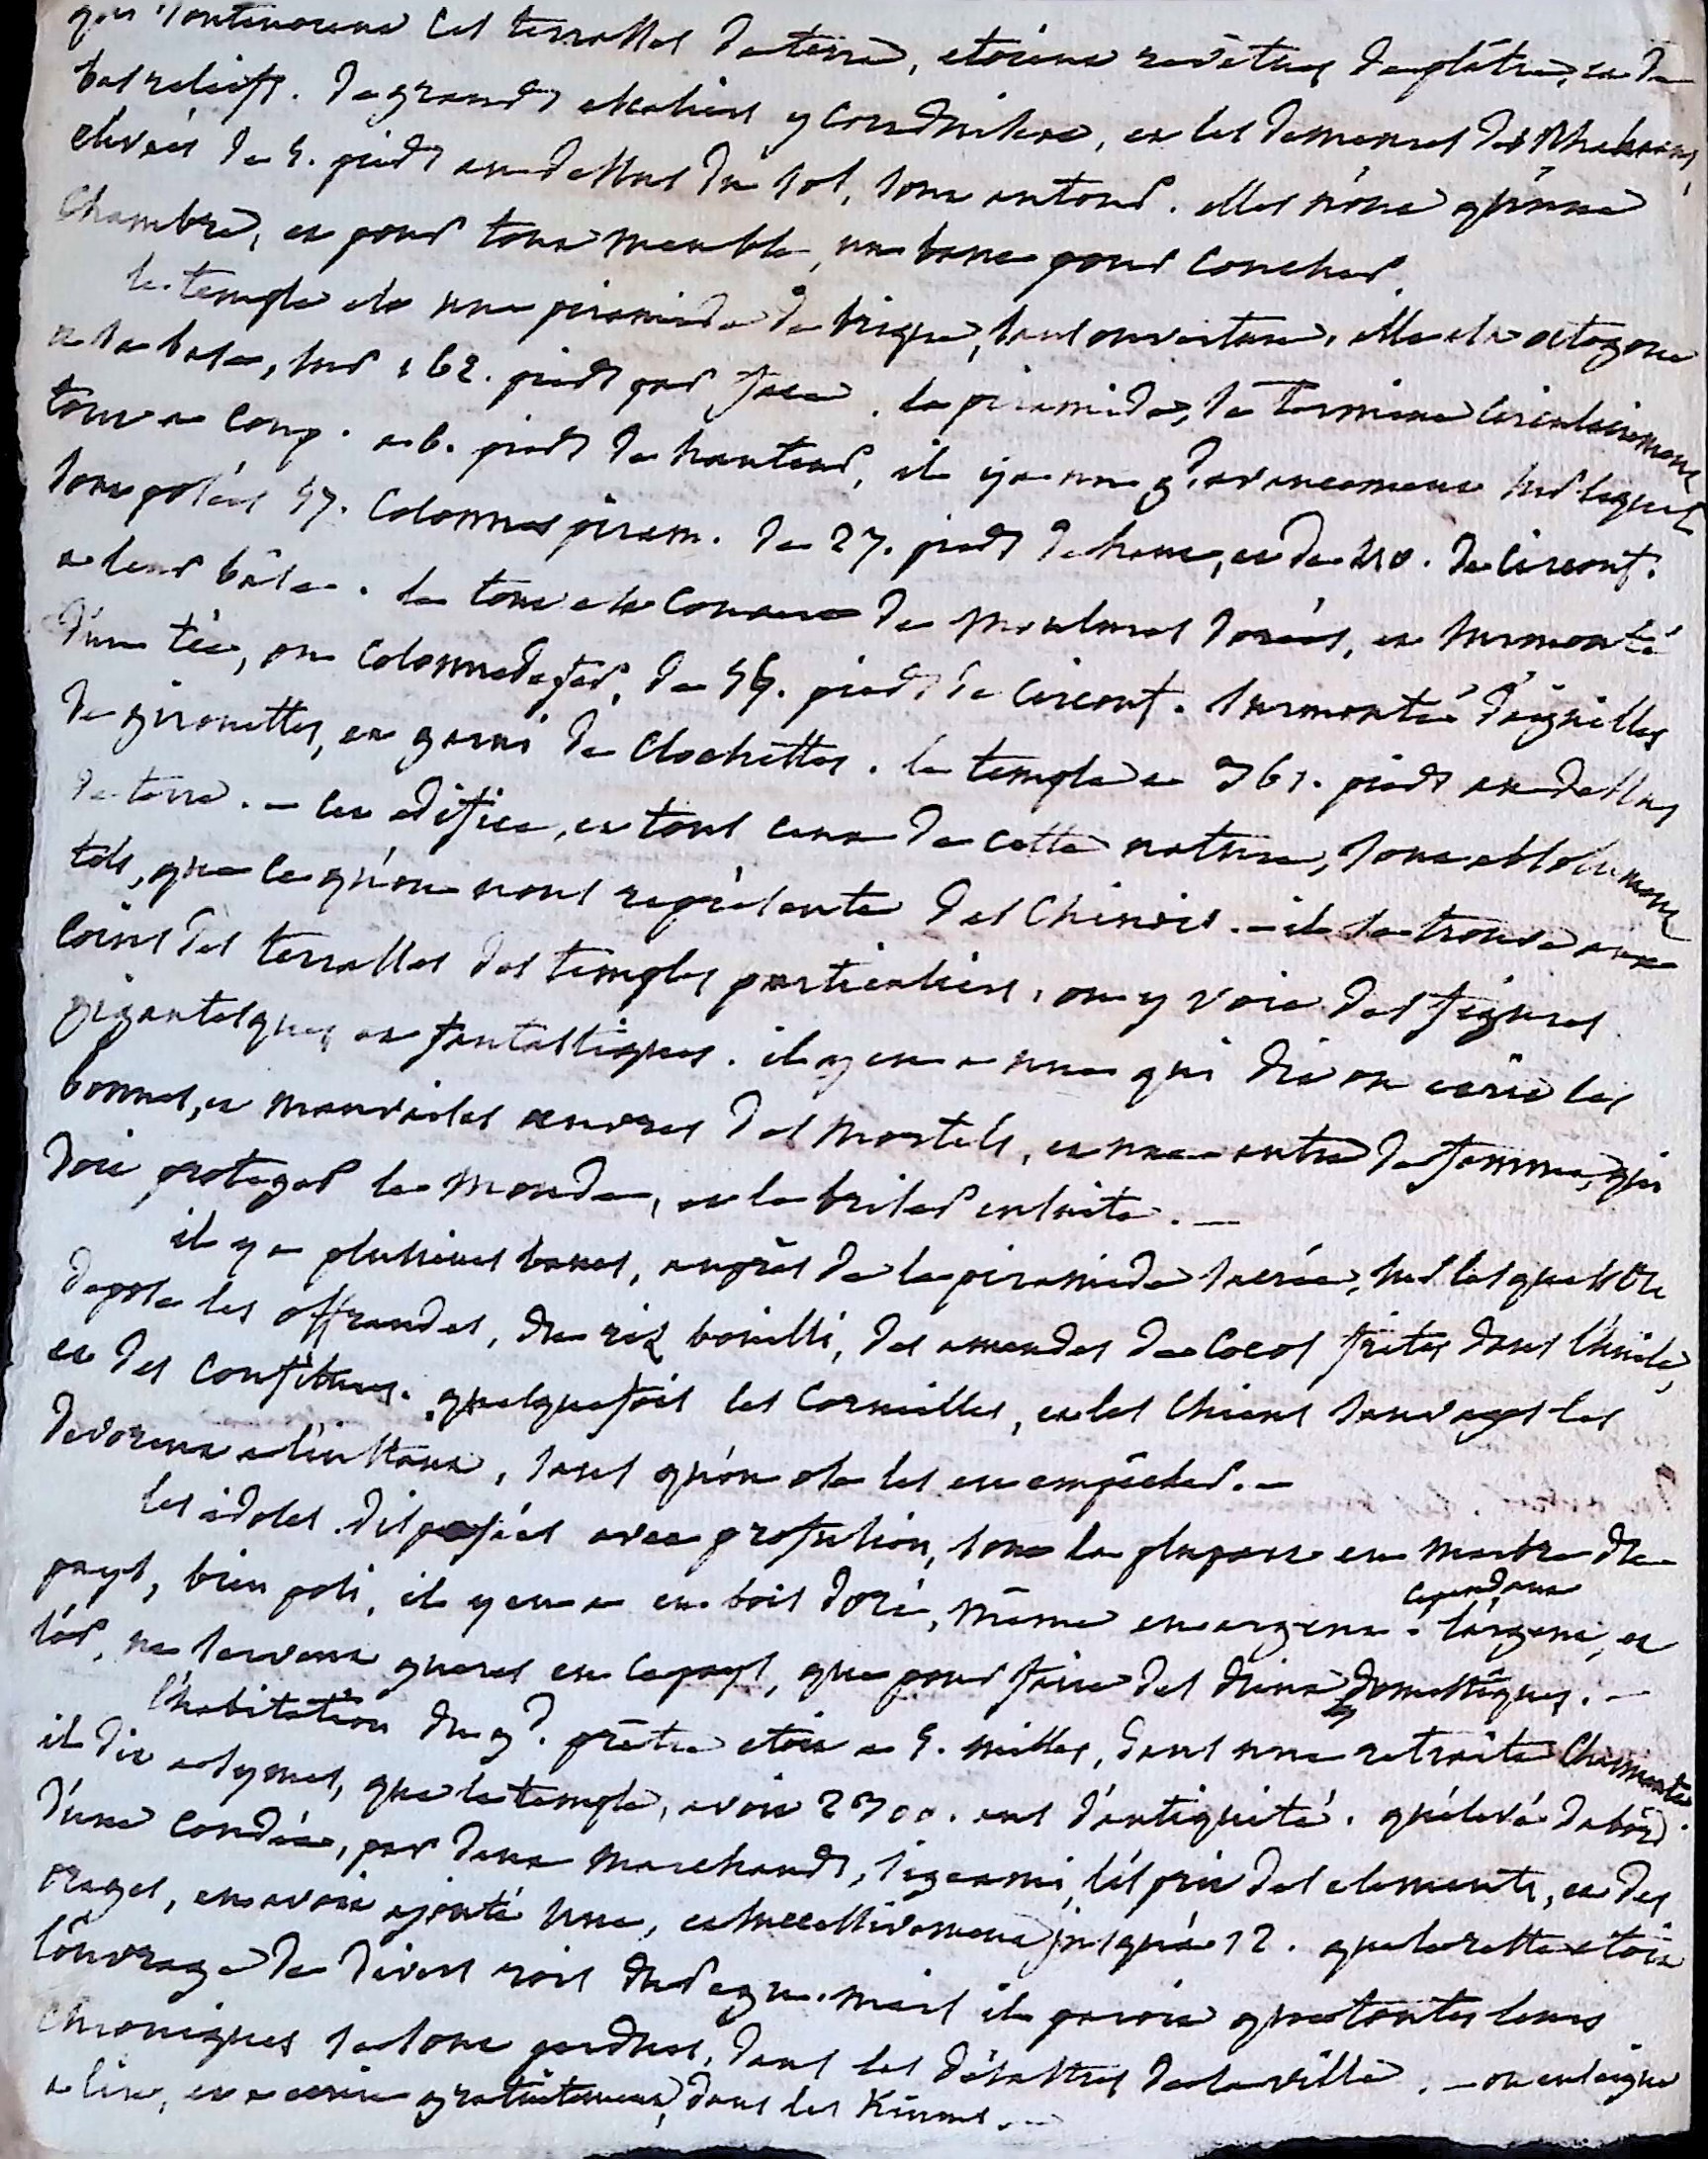 qui soutenoient ces terrasses de terre, etoient revêtues de plâtre, et de
bas reliefs. de grands escaliers y conduisent, et les demeures des Rhahaans,
elevées de 5. pieds au dessus du sol, sont autour. elles n'ont qu'une
chambre, et pour tout meuble, un banc pour coucher.
le temple est une piramide de brique, sans ouverture, elle est octogone
a sa base, sur 162. pieds par face. la piramide, se termine circulairement
tout a coup. a 6. pieds de hauteur, il y a un gd. avancement sur lequel
sont posées 57. colonnes piram. de 27. pieds de haut, et de 40. de circonf.
a leur bâse. le tout est couvert de moulures dorées, et surmonté
d'un tée, ou colonne de fer, de 56. pieds de circonf. surmontée d'éguilles
de girouettes, et garni de clochettes. le temple a 361. pieds au dessus
de terre. — cet edifice, et tous ceux de cette nature, sont absolument
tels, que ce qu'on nous represente des Chinois. — il se trouve aux
coins des terrasses des temples particuliers, on y voit des figures
gigantesques et fantastiques. il y en a une qui dit on ecrit les
bonnes, et mauvaises œuvres des mortels, et une autre de femme, qui
doit proteger le monde, et le briser ensuite. —
il y a plusieurs bancs, auprès de la piramide sacrée, sur lesquels on
depose les offrandes, du riz bouilli, des amandes de cocos frites dans l'huile,
et des confitures. quelquefois les corneilles, et les chiens sauvages les
devorent a l'instant, sans qu'on ose les en empêcher. —
les idoles disposées avec profusion, sont la plupart en marbre du
pays, bien poli, il y en a en bois doré, même en argent. cependant l'argent, et
l'or, ne servent gueres en ce pays, que pour faire des dieux domestiques. —
l'habitation du gd. prêtre etoit a 5. milles, dans une retraite charmante
il dit a symes, que le temple, avoit 2300. ans d'antiquité. qu'élevé d'abord
d'une coudée, par deux marchands, sigeami, l'esprit des elements, et des
orages, en avoit ajouté une, et successivement jusqu'à 12. que le reste etoit
l'ouvrage de divers rois du Pegu. mais il paroit que toutes leurs
chroniques se sont perdues, dans les désastres de la ville. — on enseigne
a lire, et a ecrire gratuitement, dans les Kioums. —